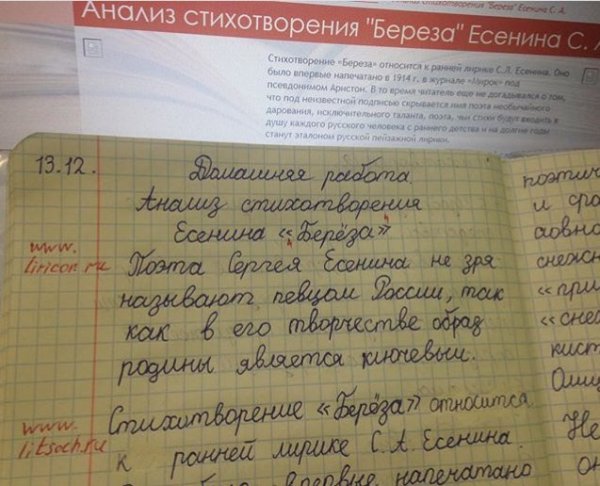 Анализ стихотворения "Береза" Есенина С. А
Стихотворение «Береза» относится к ранней лирике С.Л. Есенина. Оно
было впервые напечатано в 1914 г. в журнале «Мирок» под
псевдонимом Аристон. В то время читатель еще не догадывался о том,
что под неизвестной подписью скрывается имя поэта необычайного
дарования, исключительного таланта, поэта, чьи стихи будут входить в
душу каждого русского человека с раннего детства и на долгие годы
станут эталоном русской пейзажной лирики.
13.12.
Домашняя работа
Анализ стихотворения
Есенина «Берёза»
www.
liricon.ru
Поэта Сергея Есенина не зря
называют певцом России, так
как в его творчестве образ
родины является ключевым.
www.
litsoch.ru
Стихотворение «Берёза» относится
к ранней лирике С. А. Есенина.
впервые напечатано
поэтич
и фра
ловно
снежн
«при
«снег
кист
Олиц
Не
он